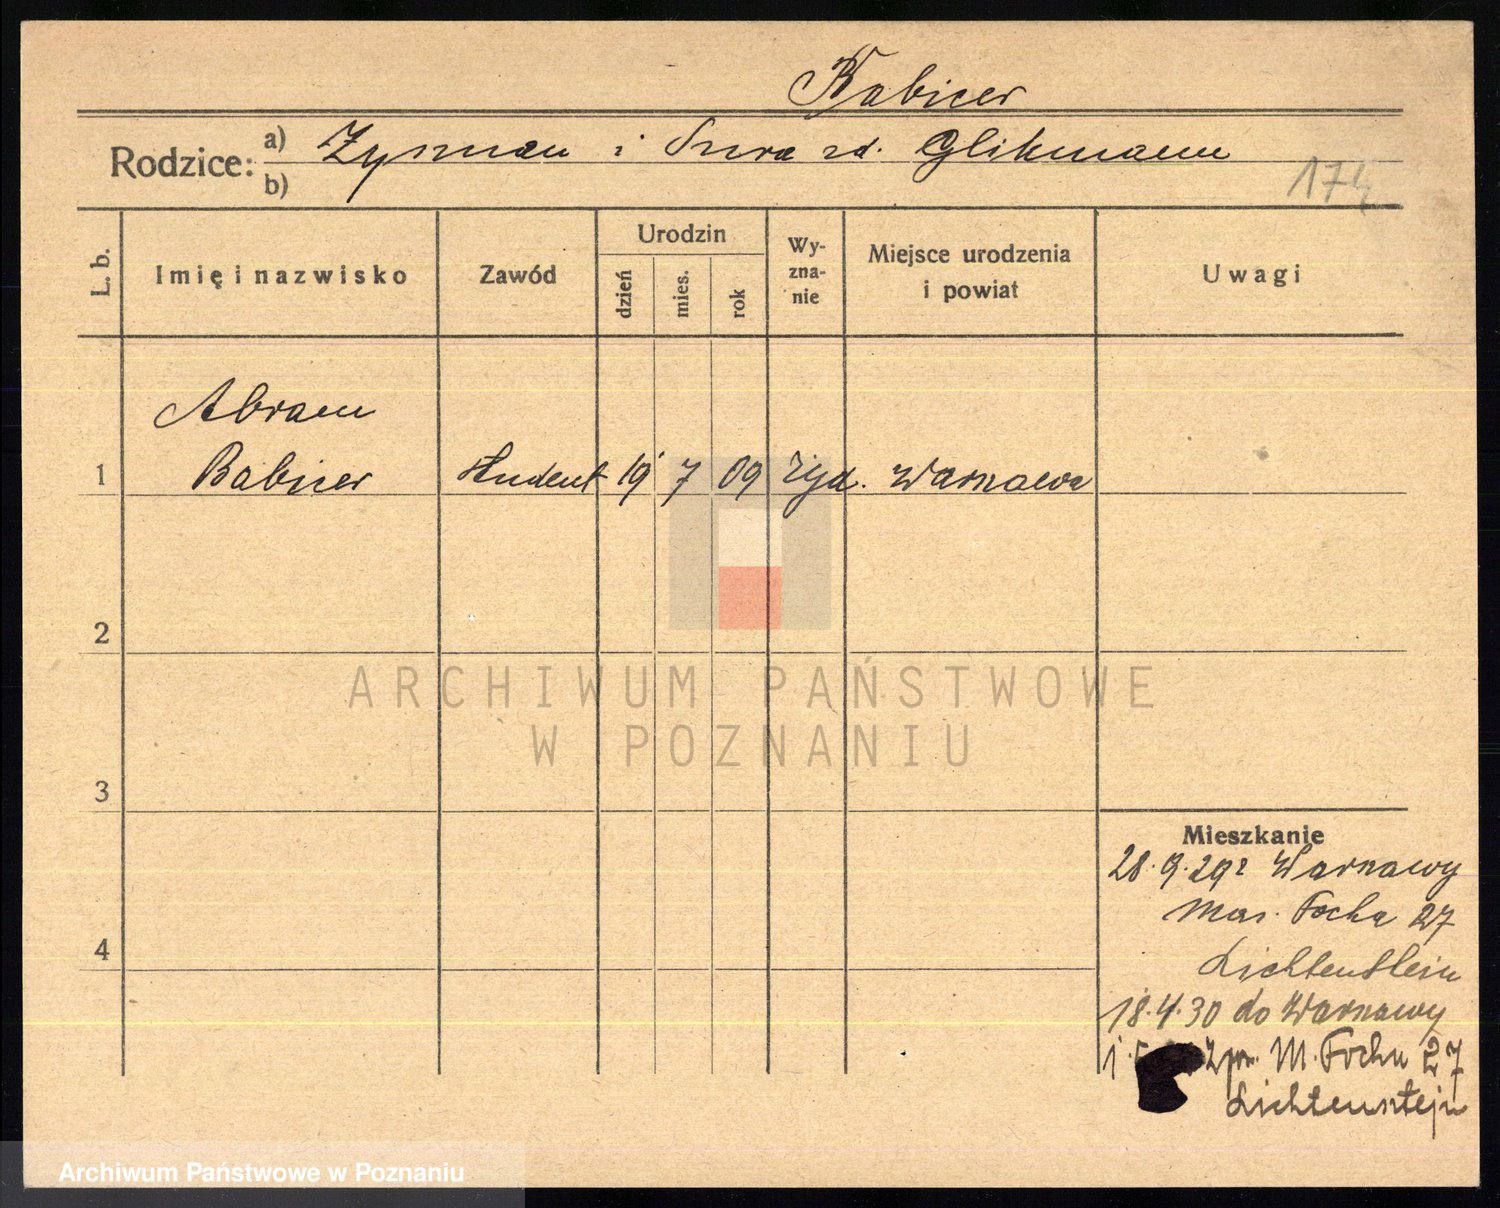 Babicer
Rodzice: a) Zysman i Sura zd. Glikmann
b)
174
L. b.
Imię i nazwisko
Zawód
Urodzin
dzień
mies.
rok
Wy-
zna-
nie
Miejsce urodzenia
i powiat
Uwagi
Abram
1 Babicer student 19 7 09 żyd. Warszawa
2
ARCHIWUM PAŃSTWOWE
W POZNANIU
3
Mieszkanie
28.9.29 z Warszawy
Mar. Focha 27
Lichtenstein
4
18.4.30 do Warszawy
M. Focha 27
Lichtensztejn
Archiwum Państwowe w Poznaniu